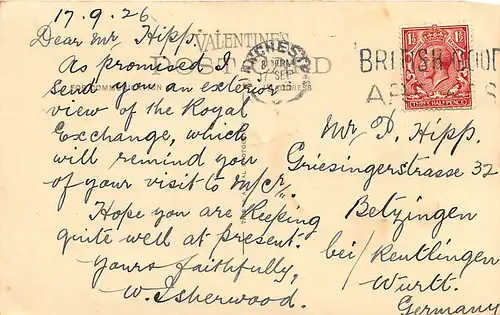 17.9.26
Dear Mr Hipp.
As promised I
send you an exterior
view of the Royal
Exchange, which
will remind you
of your visit to M/cr.
Hope you are keeping
quite well at present.
Yours faithfully,
W. Isherwood.
VALENTINE'S
POST CARD
FOR COMMUNICATION
ADDRESS
MANCHESTER
17 SEP
BRITISH GOOD
THREE HALFPENCE
Mr P. Hipp.
Griesingerstrasse 32
Betzingen
bei/Reutlingen
Württ.
Germany